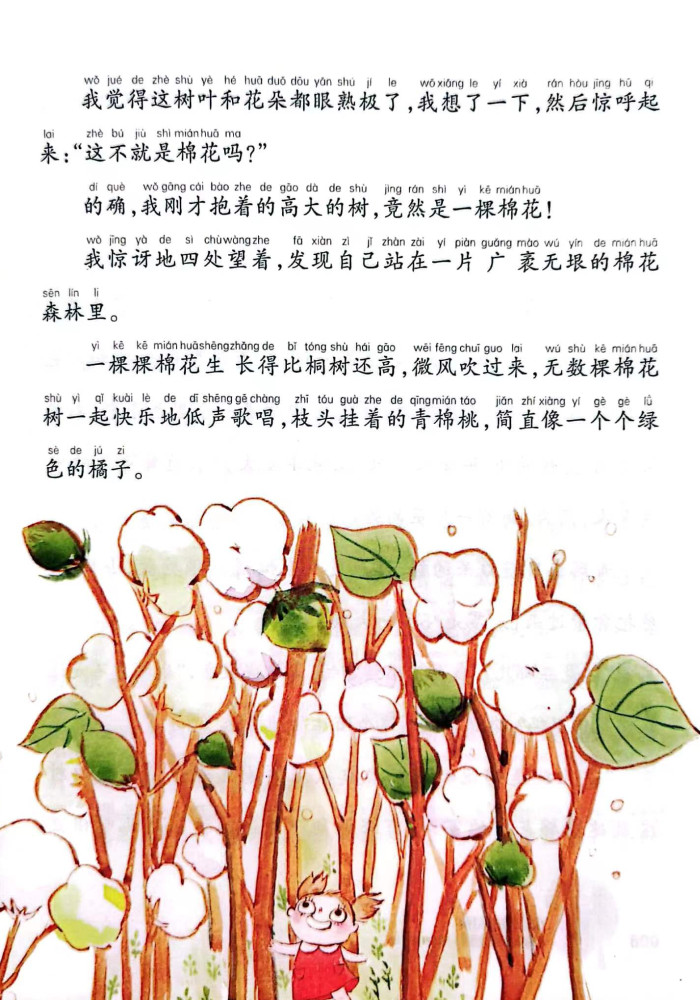 wǒ jué de zhè shù yè hé huā duǒ dōu yǎn shú jí le wǒ xiǎng le yí xià rán hòu jīng hū qi
我觉得这树叶和花朵都眼熟极了,我想了一下,然后惊呼起
lai zhè bú jiù shì mián huā ma
来:“这不就是棉花吗?”
dí què wǒ gāng cái bào zhe de gāo dà de shù jìng rán shì yì kē mián huā
的确,我刚才抱着的高大的树,竟然是一棵棉花!
wǒ jīng yà de sì chù wàng zhe fā xiàn zì jǐ zhàn zài yí piàn guǎng mào wú yín de mián huā
我惊讶地四处望着,发现自己站在一片广袤无垠的棉花
sēn lín li
森林里。
yì kē kē mián huā shēng zhǎng de bǐ tóng shù hái gāo wēi fēng chuī guo lai wú shù kē mián huā
一棵棵棉花生长得比桐树还高,微风吹过来,无数棵棉花
shù yì qǐ kuài lè de dī shēng gē chàng zhī tóu guà zhe de qīng mián táo jiǎn zhí xiàng yí gè gè lǜ
树一起快乐地低声歌唱,枝头挂着的青棉桃,简直像一个个绿
sè de jú zi
色的橘子。